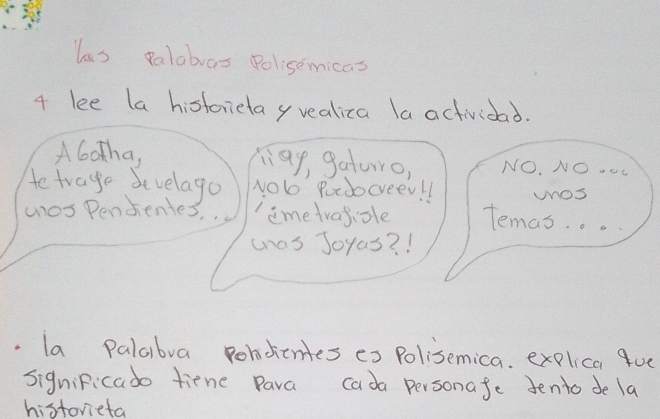 las Palabras Polisémicas
4 lee la historieta y realiza la actividad.
AGatha,
te trage de velago
unos Pendientes...
¡¡ay, gaturro,
No lo Puedo creer!!
¿me trajiste
unas Joyas?!
NO. NO....
unos
Temas....
• la Palabra Pendientes es Polisemica. explica que
significado tiene Para cada personaje dento de la
historieta